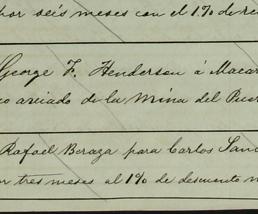 por seis meses con el 1% de re
George F. Henderson á Macar
de la Mina del
Rafael Beraza para Carlos San
tres meses al 1% de descuento